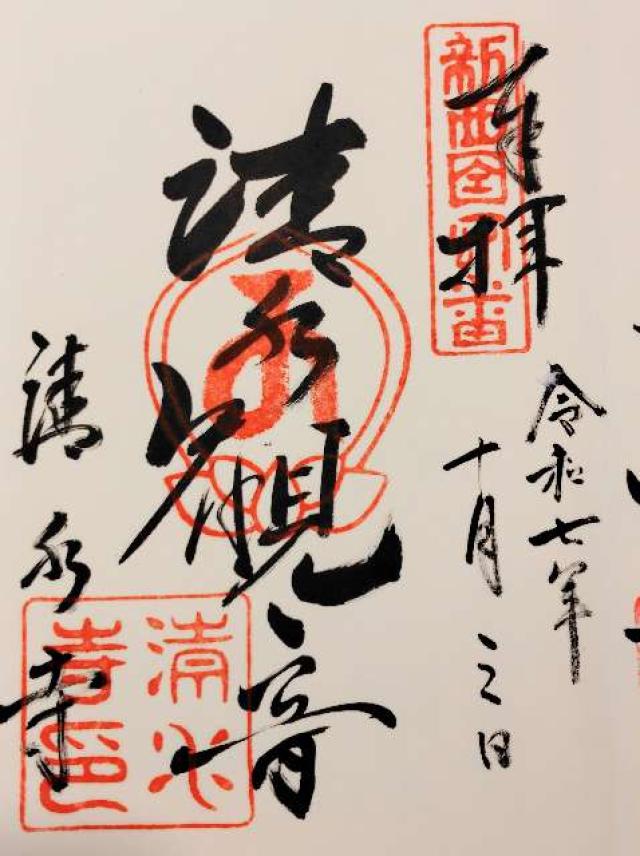 奉拝
新西国番
令和七年
十月三日
清水観音
清水寺
清水寺印